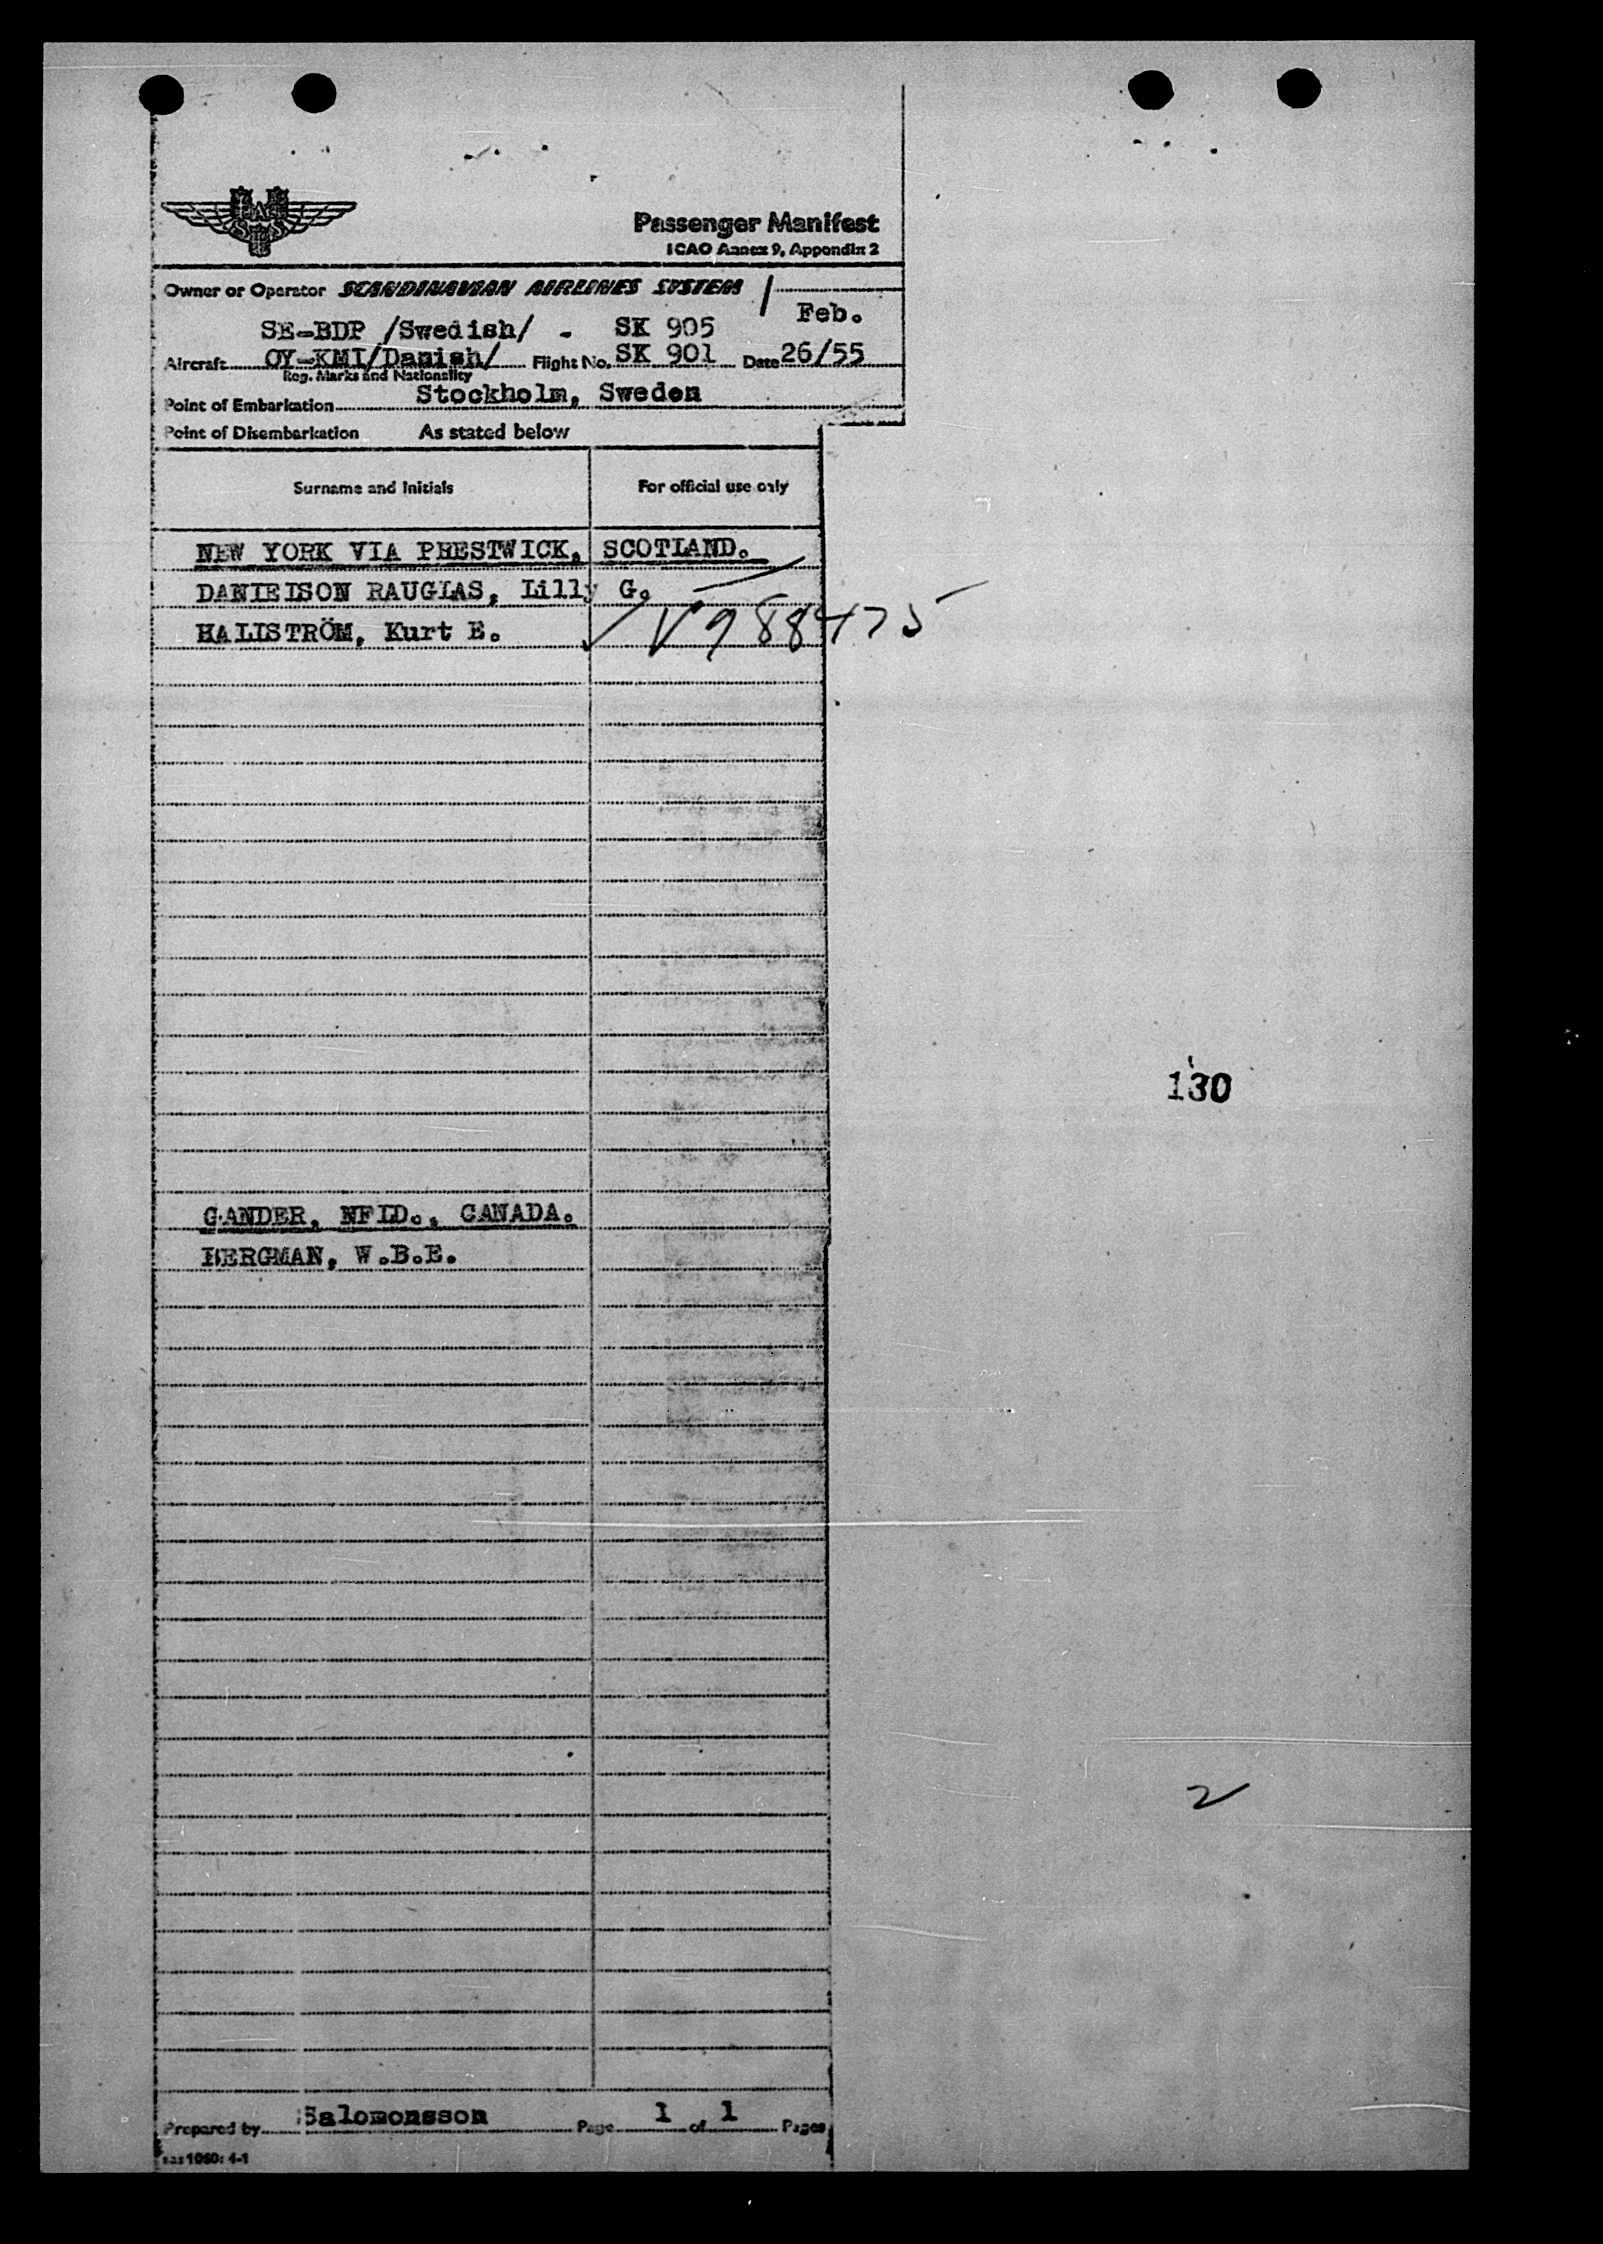 Passenger Manifest
ICAO Annex 9, Appendix 2
Owner or Operator SCANDINAVIAN AIRLINES SYSTEM
Feb.
SE-BDP /Swedish/ - SK 905
Aircraft OY-KMI/Danish/ Flight No. SK 901 Date 26/55
Reg. Marks and Nationality
Point of Embarkation Stockholm, Sweden
Point of Disembarkation As stated below
Surname and Initials For official use only
NEW YORK VIA PRESTWICK, SCOTLAND.
DANIELSON RAUGLAS, Lilly G.
HALLSTRÖM, Kurt E. V988475
130
GANDER, NFLD., CANADA.
BERGMAN, W.B.E.
2
Prepared by Salomonsson Page 1 of 1 Pages
SAS 1060: 4-1